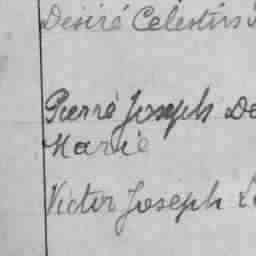 Désiré Célestins
Pierre Joseph De
Marie
Victor Joseph